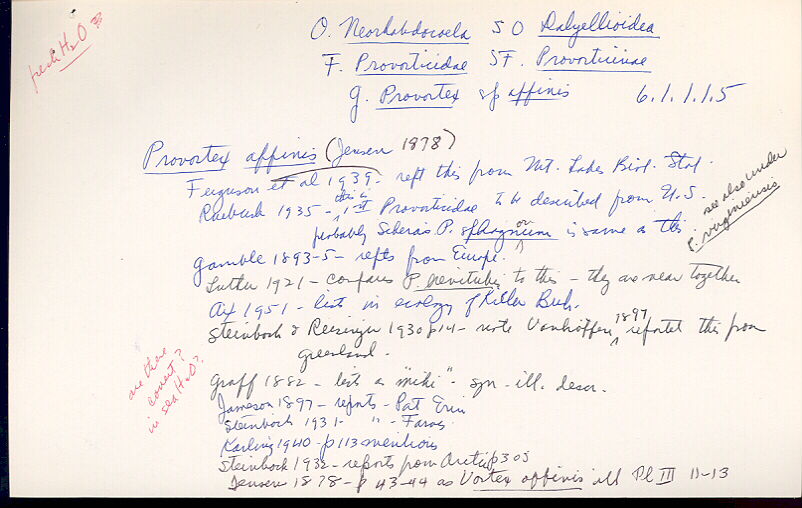 fresh H2O?
O. Neorhabdocoela SO Dalyellioidea
F. Provorticidae SF. Provorticinae
g. Provortex sp affinis 6.1.1.1.5
Provortex affinis (Jensen 1878)
Ferguson et al 1939 - rept this from Mt. Lakes Biol. Stat.
Ruebush 1935 - this is 1st Provorticidae to be described from U.S.
probably P. sphagnorum is same as this
see also under
P. virginiensis
Gamble 1893-5 - repts from Europe.
Luther 1921 - compares P. brevitubus to this - they are near together
Ax 1951 - lists in ecology of Kieler Buch.
Steinbock & Reisinger 1930 p14 - note Vanhoffen 1897 reported this from
Greenland.
are these
correct?
in sea H2O?
Graff 1882 - lists as "mihi" - syn - ill. descr.
Jameson 1897 - reports - Port Erin
Steinbock 1931 - " - Faroes
Karling 1940 - p 113 mentions
Steinbock 1932 - reports from Arctic p 305
Jensen 1878 - p 43-44 as Vortex affinis ill Pl III 11-13